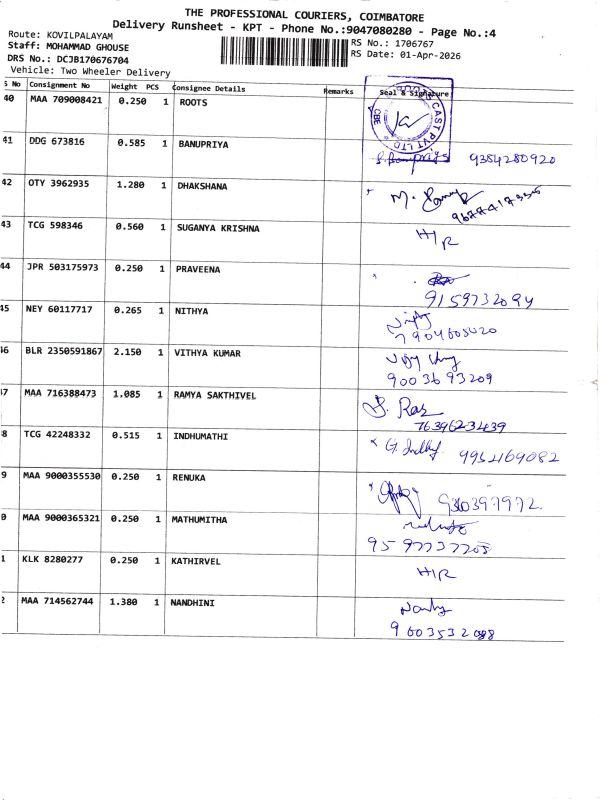 THE PROFESSIONAL COURIERS, COIMBATORE
Delivery Runsheet - KPT - Phone No.:9047080280 - Page No.:4
Route: KOVILPALAYAM
Staff: MOHAMMAD GHOUSE
RS No.: 1706767
DRS No.: DCJB170676704
RS Date: 01-Apr-2026
Vehicle: Two Wheeler Delivery
S No Consignment No Weight PCS Consignee Details Remarks Seal & Signature
40 MAA 709008421 0.250 1 ROOTS
CAST PVT LTD
CBE
41 DDG 673816 0.585 1 BANUPRIYA
9384280920
42 OTY 3962935 1.280 1 DHAKSHANA
43 TCG 598346 0.560 1 SUGANYA KRISHNA
HIR
44 JPR 503175973 0.250 1 PRAVEENA
9159732094
45 NEY 60117717 0.265 1 NITHYA
46 BLR 2350591867 2.150 1 VITHYA KUMAR
9003693209
47 MAA 716388473 1.085 1 RAMYA SAKTHIVEL
7639623439
8 TCG 42248332 0.515 1 INDHUMATHI
9952169082
9 MAA 9000355530 0.250 1 RENUKA
0 MAA 9000365321 0.250 1 MATHUMITHA
1 KLK 8280277 0.250 1 KATHIRVEL
HIR
2 MAA 714562744 1.380 1 NANDHINI